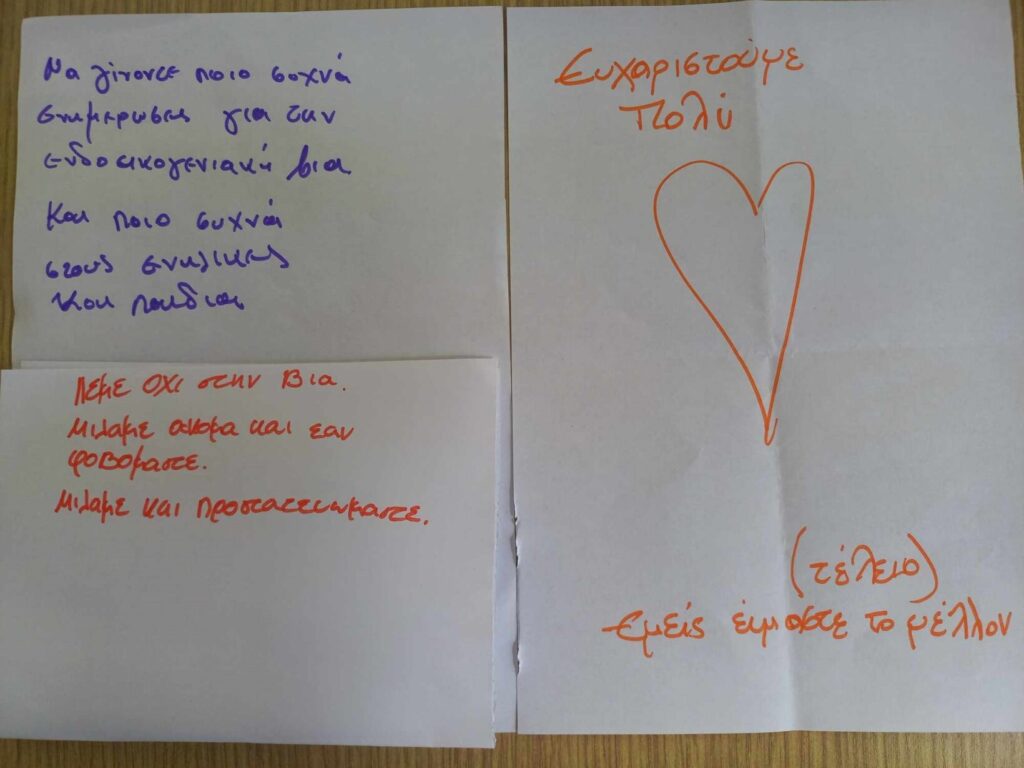 Να γίνοντε ποιο συχνά
ενημερωσεις για την
ενδοοικογενιακή βια
Και ποιο συχνά
στους ενηλικες
και παιδια
Πέμε ΟΧΙ στην Βια.
Μιλαμε ακομα και εαν
φοβομαστε.
Μιλαμε και προστατευωμαστε.
Ευχαριστούμε
Πολύ
(τέλειο)
Εμείς είμαστε το μέλλον